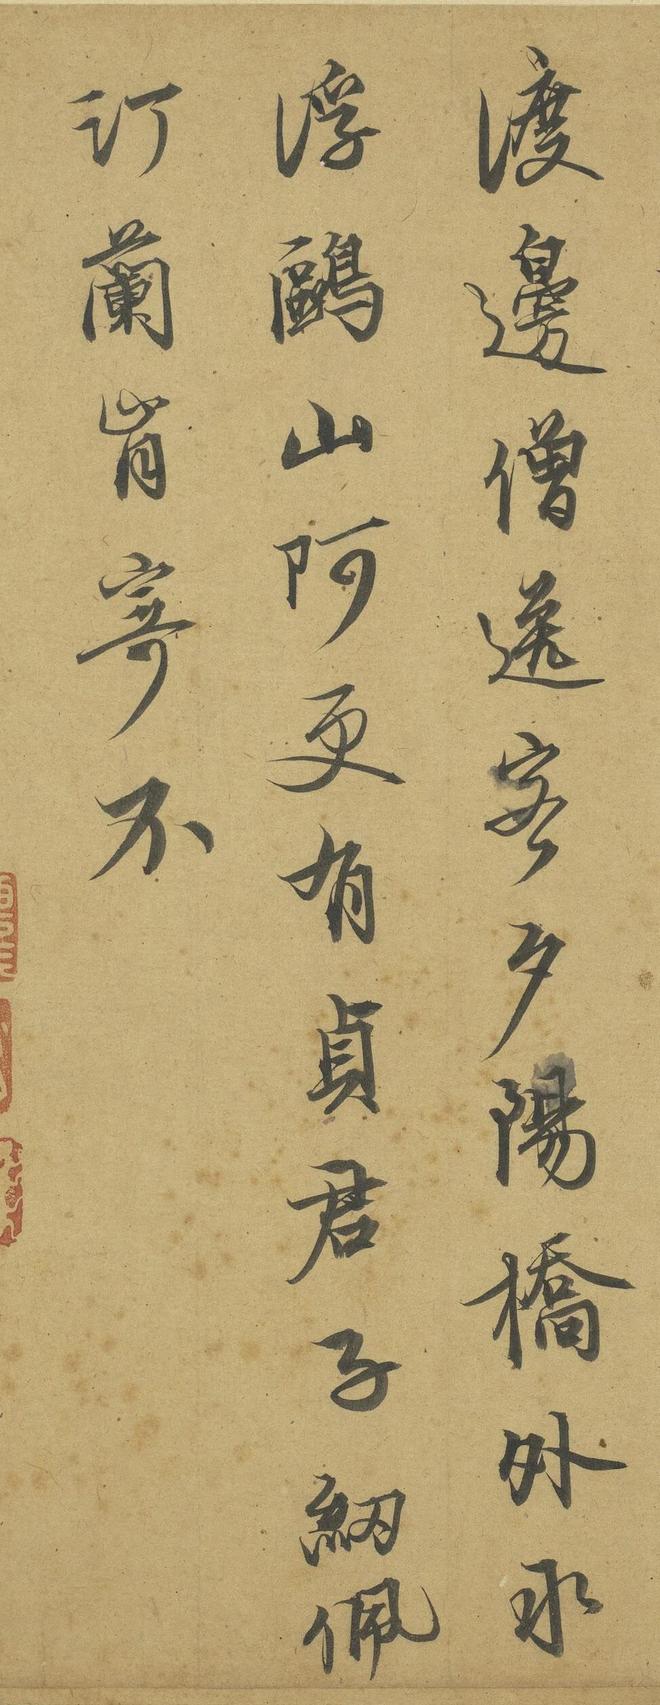 渡邊僧送客夕陽橋外水
浮鷗山阿更有貞君子紉佩
汀蘭肯寄不